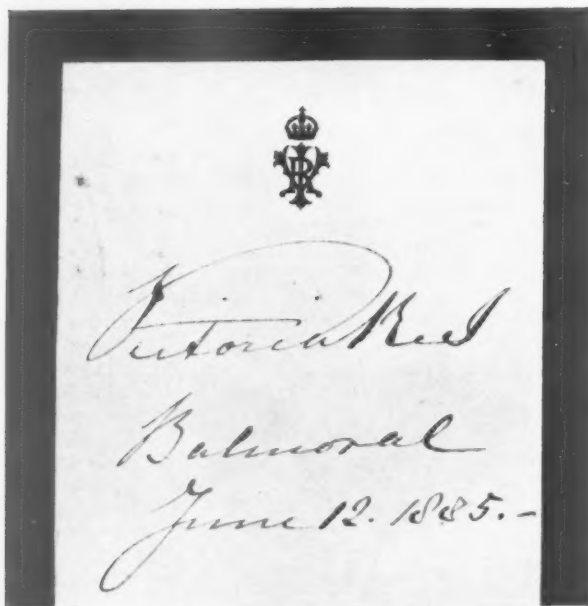 VRI
Victoria R I
Balmoral
June 12. 1885.-